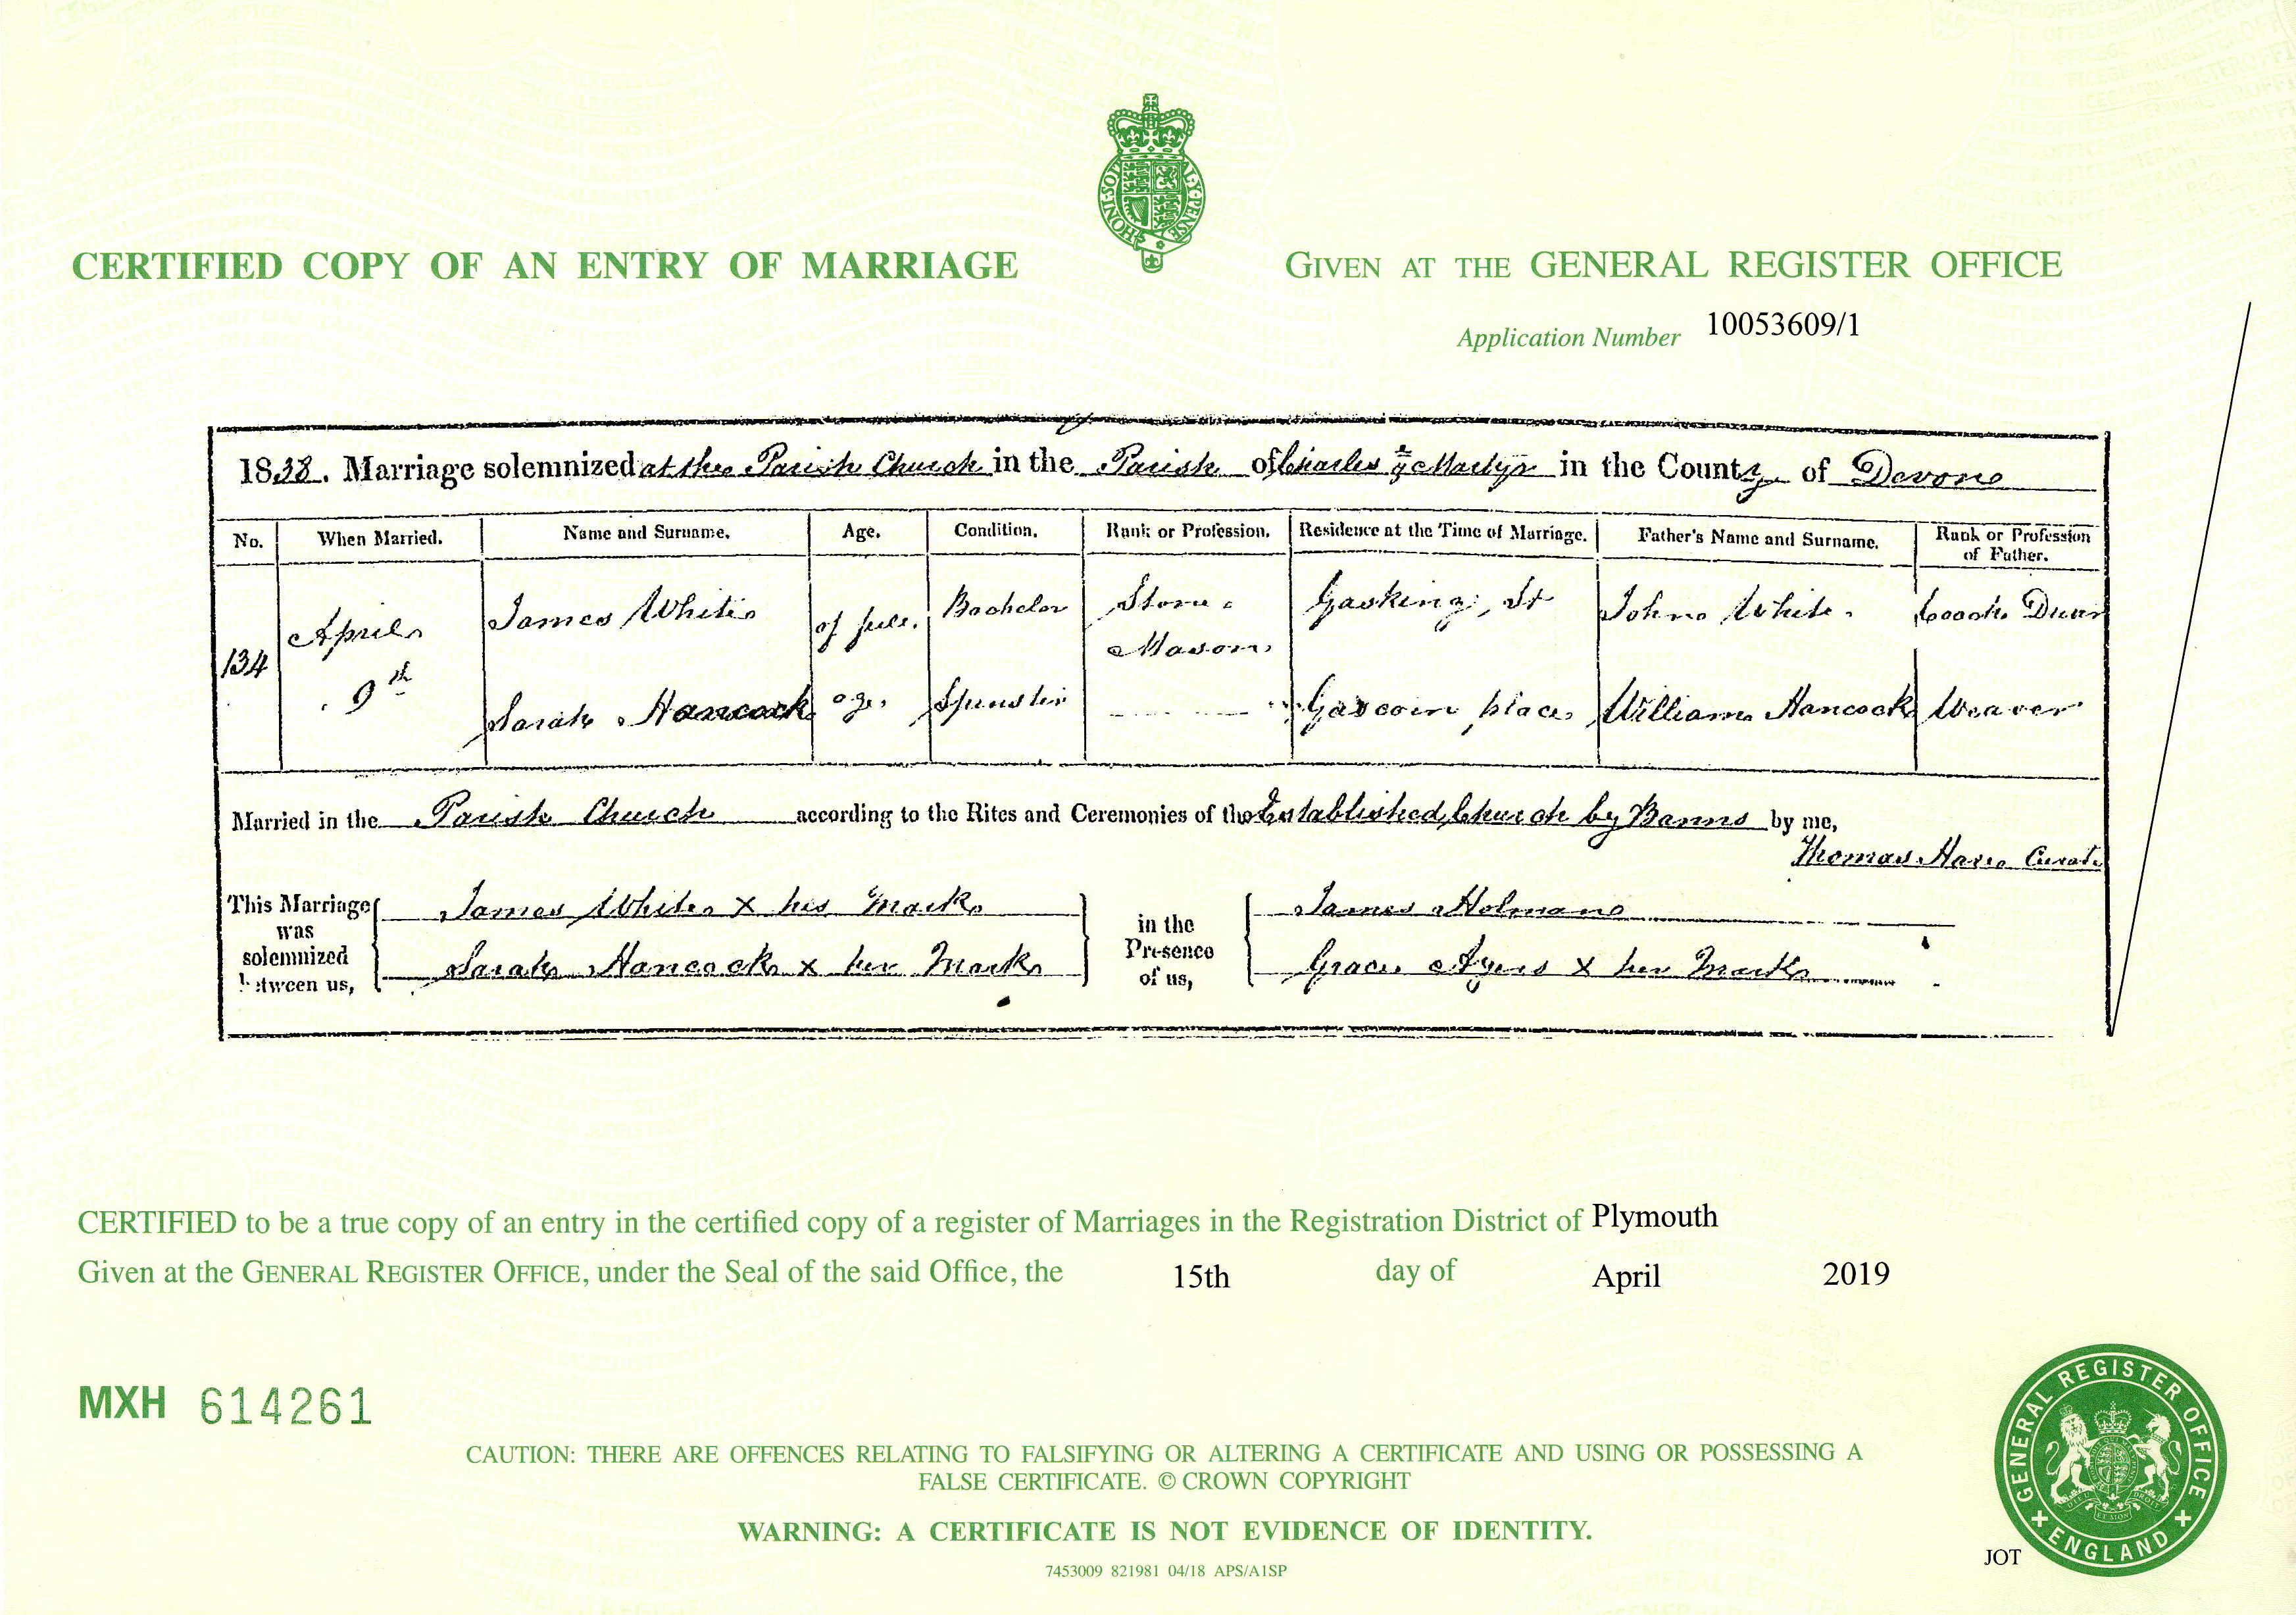 HONI·SOIT AL·Y·PENSE
CERTIFIED COPY OF AN ENTRY OF MARRIAGE
GIVEN AT THE GENERAL REGISTER OFFICE
Application Number 10053609/1
1838. Marriage solemnized at the Parish Church in the Parish of Charles ye Martyr in the County of Devon
No. When Married. Name and Surname. Age. Condition. Rank or Profession. Residence at the Time of Marriage. Father's Name and Surname. Rank or Profession of Father.
134 April 9th James White of full age Bachelor Stone Mason Gasking St John White
Sarah Hancock Spinster Gascoin place William Hancock Weaver
Married in the Parish Church according to the Rites and Ceremonies of the Established Church by Banns by me,
Thomas Curate
This Marriage was solemnized between us, James White X his Mark in the Presence of us, James Holman
Sarah Hancock X her Mark Grace Ayers X her Mark
CERTIFIED to be a true copy of an entry in the certified copy of a register of Marriages in the Registration District of Plymouth
Given at the GENERAL REGISTER OFFICE, under the Seal of the said Office, the 15th day of April 2019
MXH 614261
CAUTION: THERE ARE OFFENCES RELATING TO FALSIFYING OR ALTERING A CERTIFICATE AND USING OR POSSESSING A
FALSE CERTIFICATE. © CROWN COPYRIGHT
WARNING: A CERTIFICATE IS NOT EVIDENCE OF IDENTITY.
7453009 821981 04/18 APS/A1SP
JOT
GENERAL REGISTER OFFICE
ENGLAND